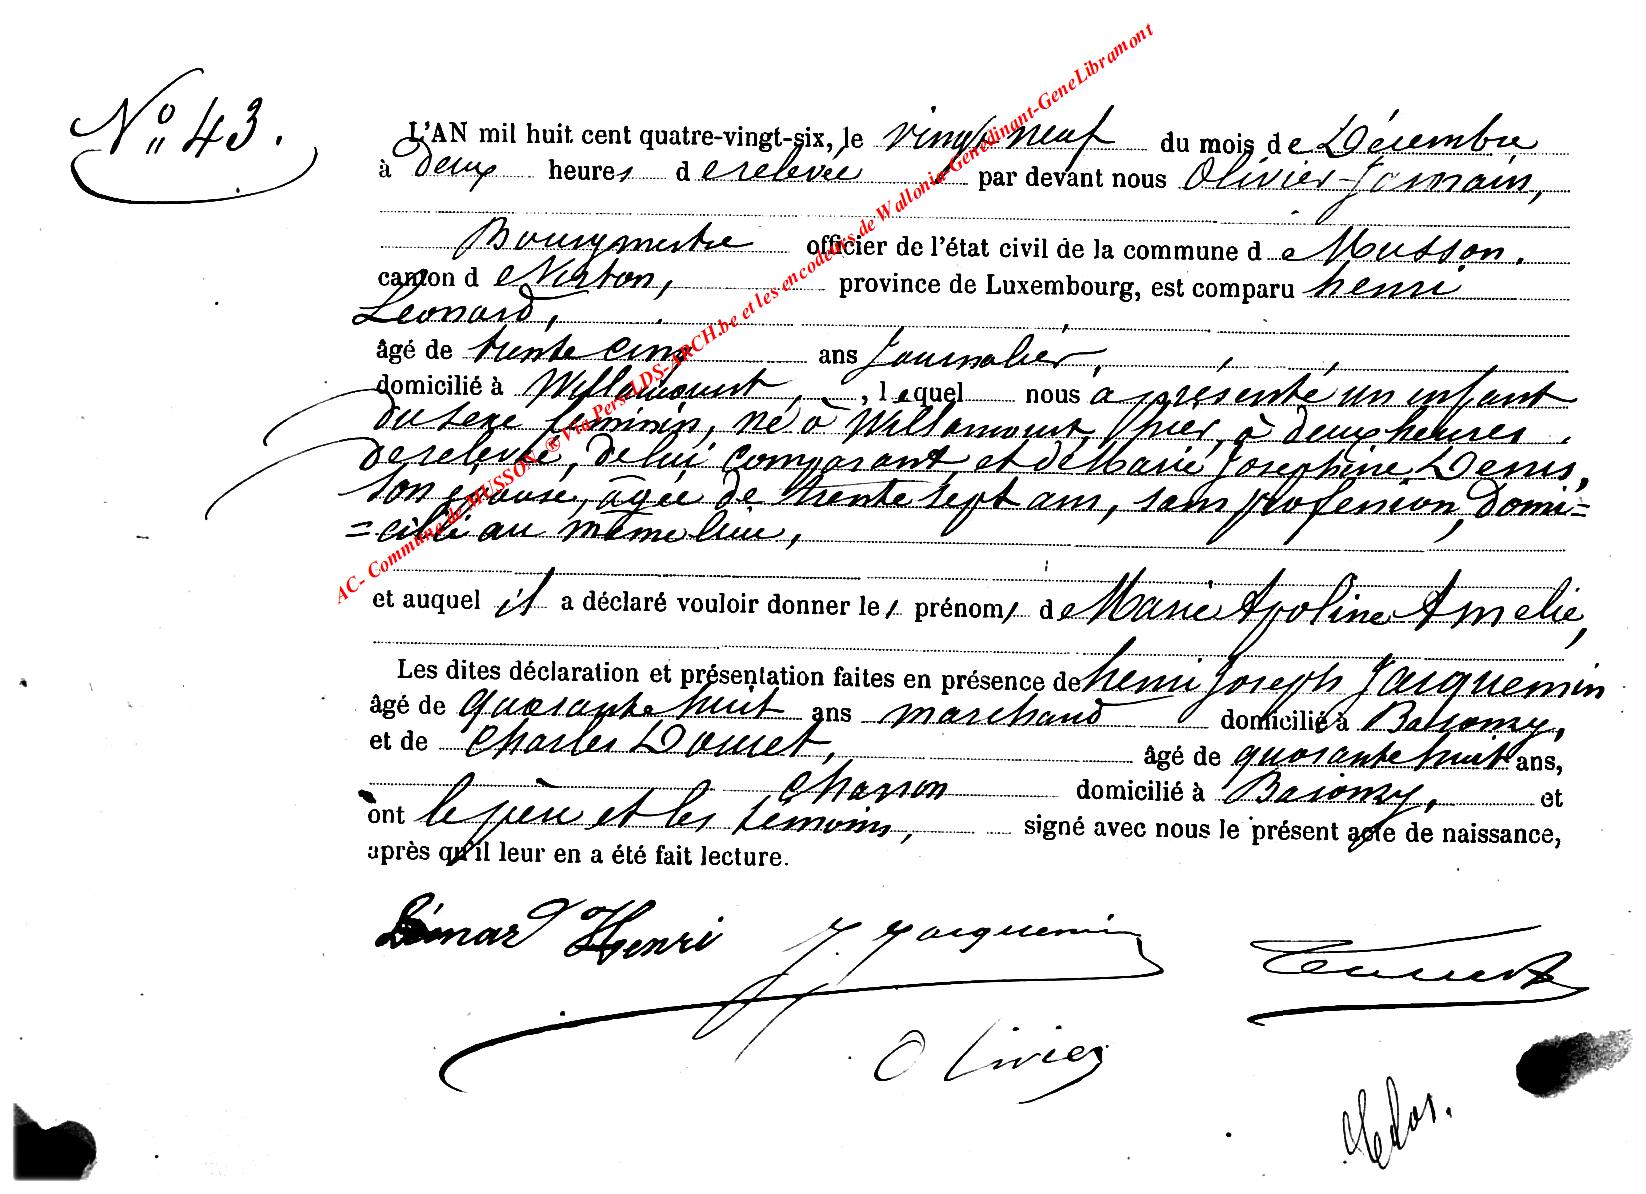 N° 43.
L'AN mil huit cent quatre-vingt-six, le vingt neuf du mois de Décembre
à deux heures de relevée par devant nous Olivier Jomain,
Bourgmestre officier de l'état civil de la commune de Musson.
canton de Virton, province de Luxembourg, est comparu henri
Leonard,
âgé de trente cinq ans Journalier,
domicilié à Willancourt, lequel nous a présenté un enfant
du sexe feminin, né à Willancourt, hier, à deux heures
de relevée, de lui comparant et de Marie Josephine Denis,
son épouse, âgée de trente sept ans, sans profession, domi=
=cilié au même lieu,
et auquel il a déclaré vouloir donner les prénoms de Marie Apoline Amelie,
Les dites déclaration et présentation faites en présence de henri Joseph Jacquemin
âgé de quarante huit ans marchand domicilié à Baranzy,
et de Charles Douret, âgé de quarante huit ans,
charron domicilié à Baranzy, et
ont le père et les témoins, signé avec nous le présent acte de naissance,
après qu'il leur en a été fait lecture.
Léonard Henri J. Jacquemin
Olivier
AC- Commune de MUSSON ® Via Pers-LDS-ARCH.be et les encodeurs de Wallonia-Genedinant-GeneLibramont